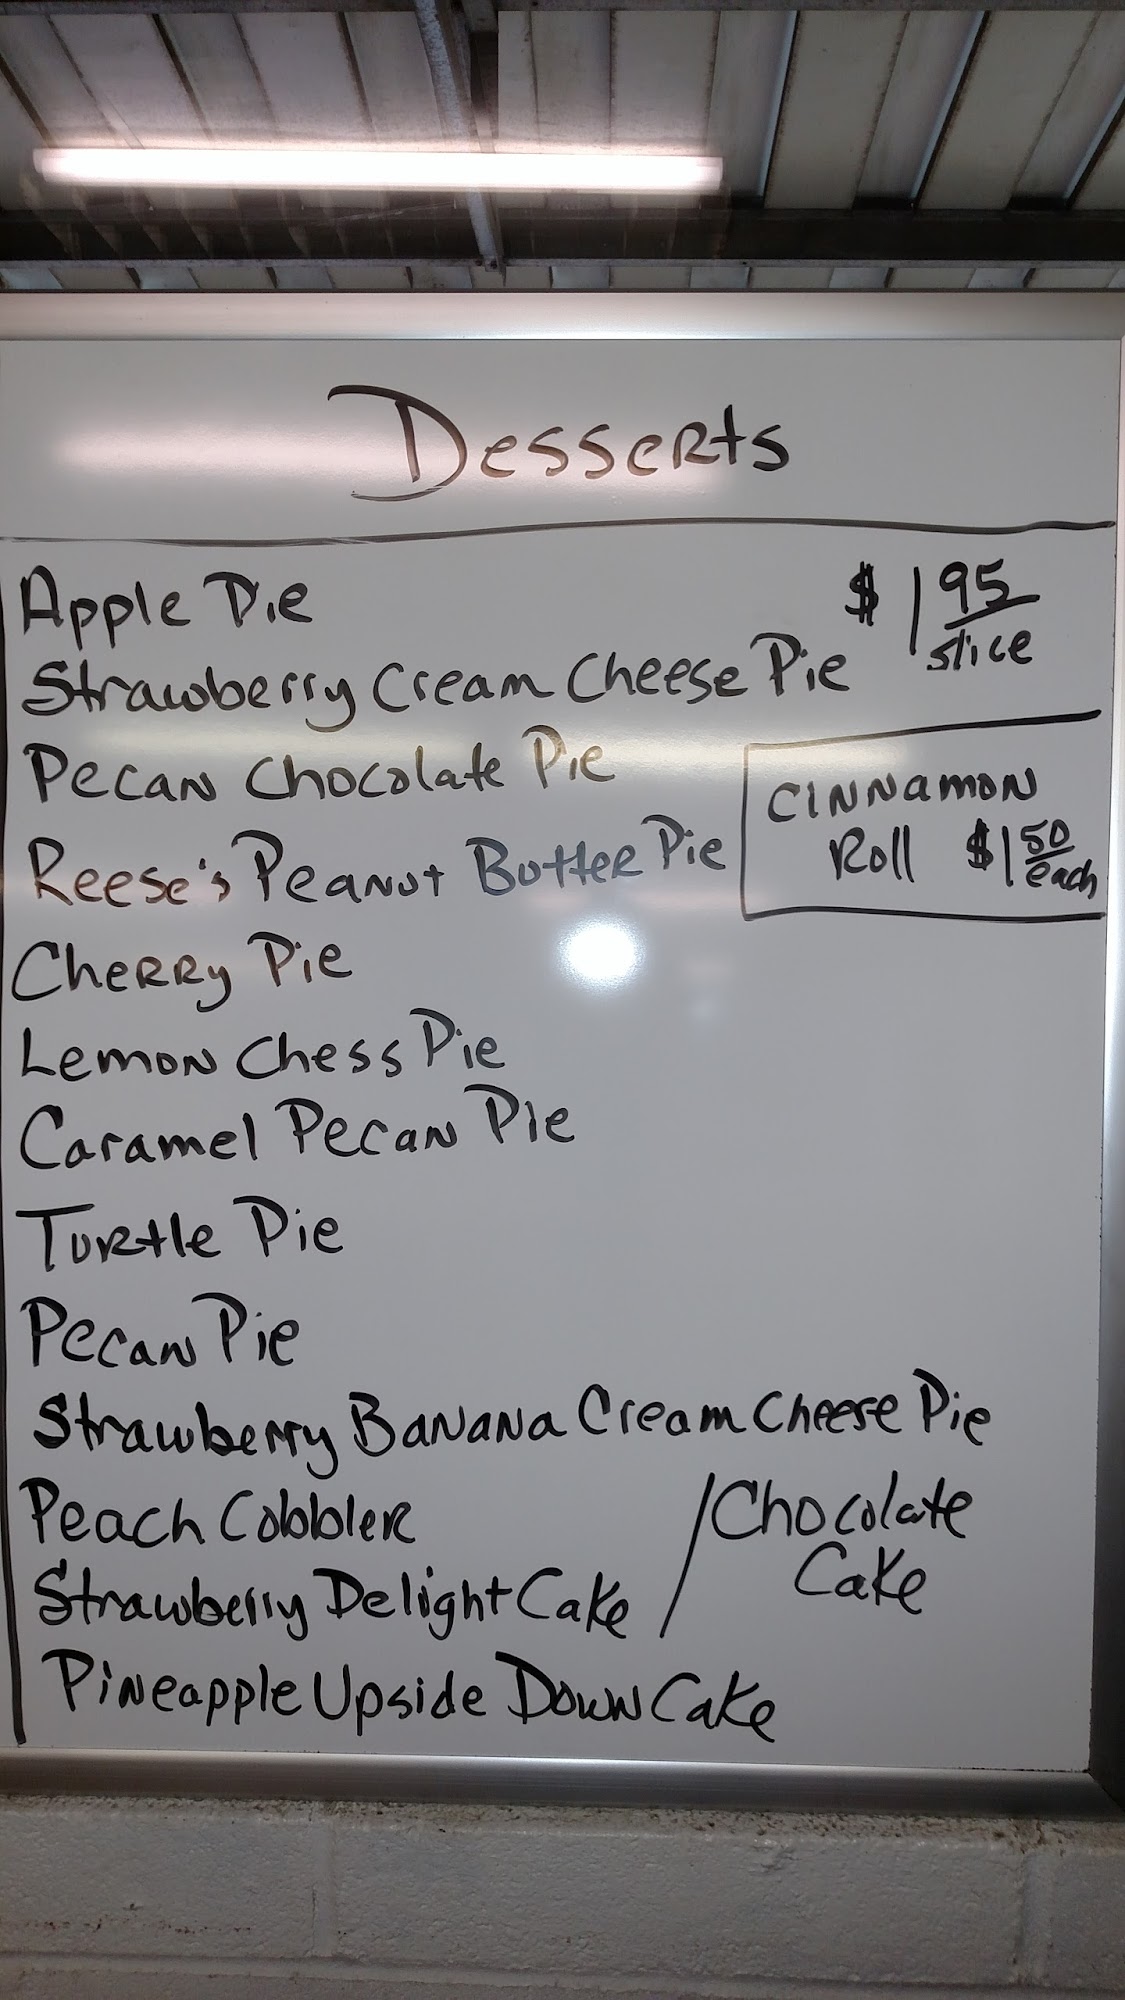 Desserts
Apple Pie
$1.95/slice
Strawberry Cream Cheese Pie
Pecan Chocolate Pie
Cinnamon
Roll $1.50/each
Reese's Peanut Butter Pie
Cherry Pie
Lemon Chess Pie
Caramel Pecan Pie
Turtle Pie
Pecan Pie
Strawberry Banana Cream Cheese Pie
Peach Cobbler
Strawberry Delight Cake / Chocolate
Cake
Pineapple Upside Down Cake